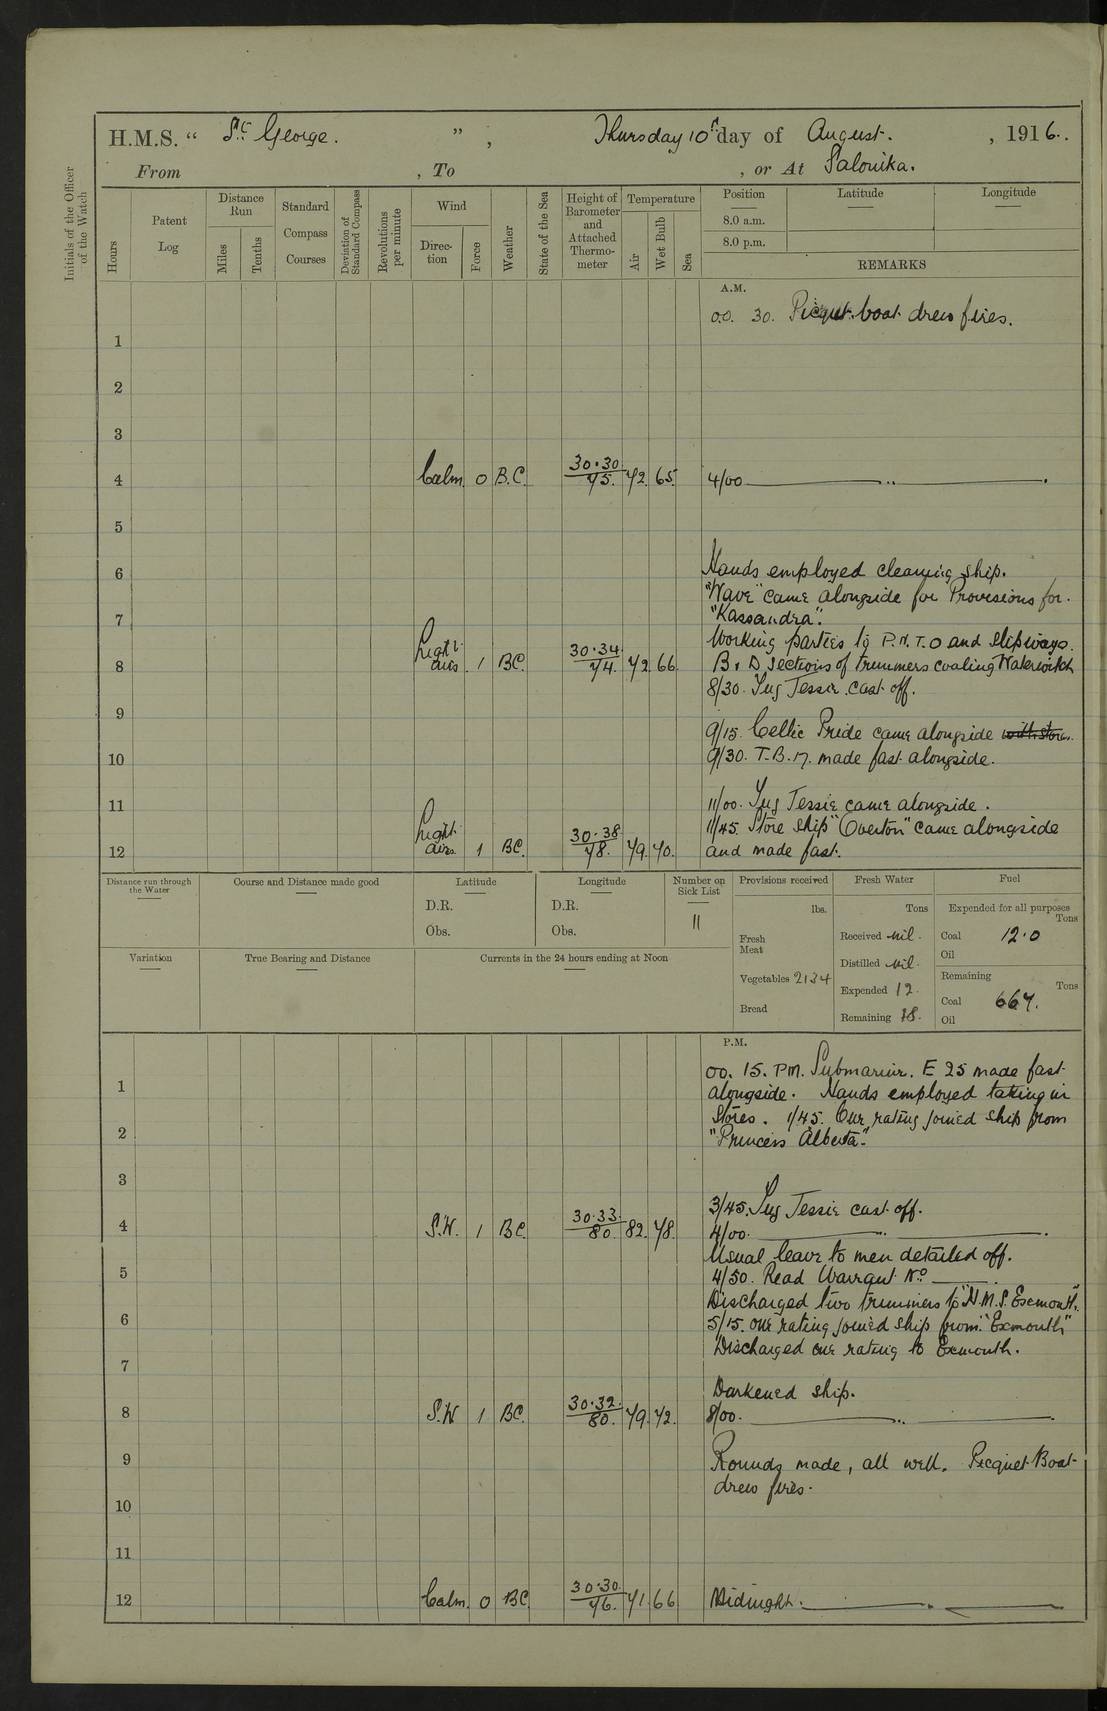 H.M.S. “ St George. ” , Thursday 10th day of August. , 1916.
From , To , or At Salonika.
Initials of the Officer of the Watch
Hours
Patent Log
Distance Run
Miles
Tenths
Standard Compass Courses
Deviation of Standard Compass
Revolutions per minute
Wind
Direction
Force
Weather
State of the Sea
Height of Barometer and Attached Thermometer
Temperature
Air
Wet Bulb
Sea
Position
8.0 a.m.
8.0 p.m.
Latitude
Longitude
REMARKS
A.M.
00. 30. Picquet boat drew fires.
1
2
3
4 Calm. 0 B.C. 30·30 75. 72. 65. 4/00 ———— „ ————.
5
6 Hands employed cleaning ship.
"Wave" came alongside for Provisions for.
7 "Kassandra".
Working parties to P.N.T.O and slipways.
8 Light airs. 1 BC. 30·34 74. 72. 66. B & D sections of trimmers coaling Waterwitch
8/30. Tug Jessie cast off.
9
9/15. Celtic Pride came alongside with stores.
10 9/30. T.B. 17. made fast alongside.
11 11/00. Tug Jessie came alongside.
11/45. Store ship "Overton" came alongside
12 Light airs. 1 BC. 30·38 78. 79. 70. and made fast.
Distance run through the Water
Course and Distance made good
Latitude
D.R.
Obs.
Longitude
D.R.
Obs.
Number on Sick List
11
Provisions received
lbs.
Fresh Meat
Vegetables 2134
Bread
Fresh Water
Tons
Received nil.
Distilled nil.
Expended 12.
Remaining 38.
Fuel
Expended for all purposes
Tons
Coal 12·0
Oil
Remaining
Tons
Coal 667.
Oil
Variation
True Bearing and Distance
Currents in the 24 hours ending at Noon
P.M.
00. 15. PM. Submarine. E 25 made fast
1 alongside. Hands employed taking in
Stores. 1/45. One rating joined ship from
2 "Princess Alberta".
3
3/45. Tug Jessie cast off.
4 S.W. 1 BC. 30·33. 80. 82. 78. 4/00. ———— „ ————.
Usual leave to men detailed off.
5 4/50. Read Warrant No ———.
Discharged two trimmers to "H.M.S. Exmouth".
6 5/15. One rating joined ship from "Exmouth"
Discharged one rating to Exmouth.
7
Darkened ship.
8 S.W 1 BC. 30·32. 80. 79. 72. 8/00. ———— „ ————.
9 Rounds made, all well. Picquet Boat
drew fires.
10
11
12 Calm. 0 BC. 30·30. 76. 71. 66 Midnight. ———— . ————